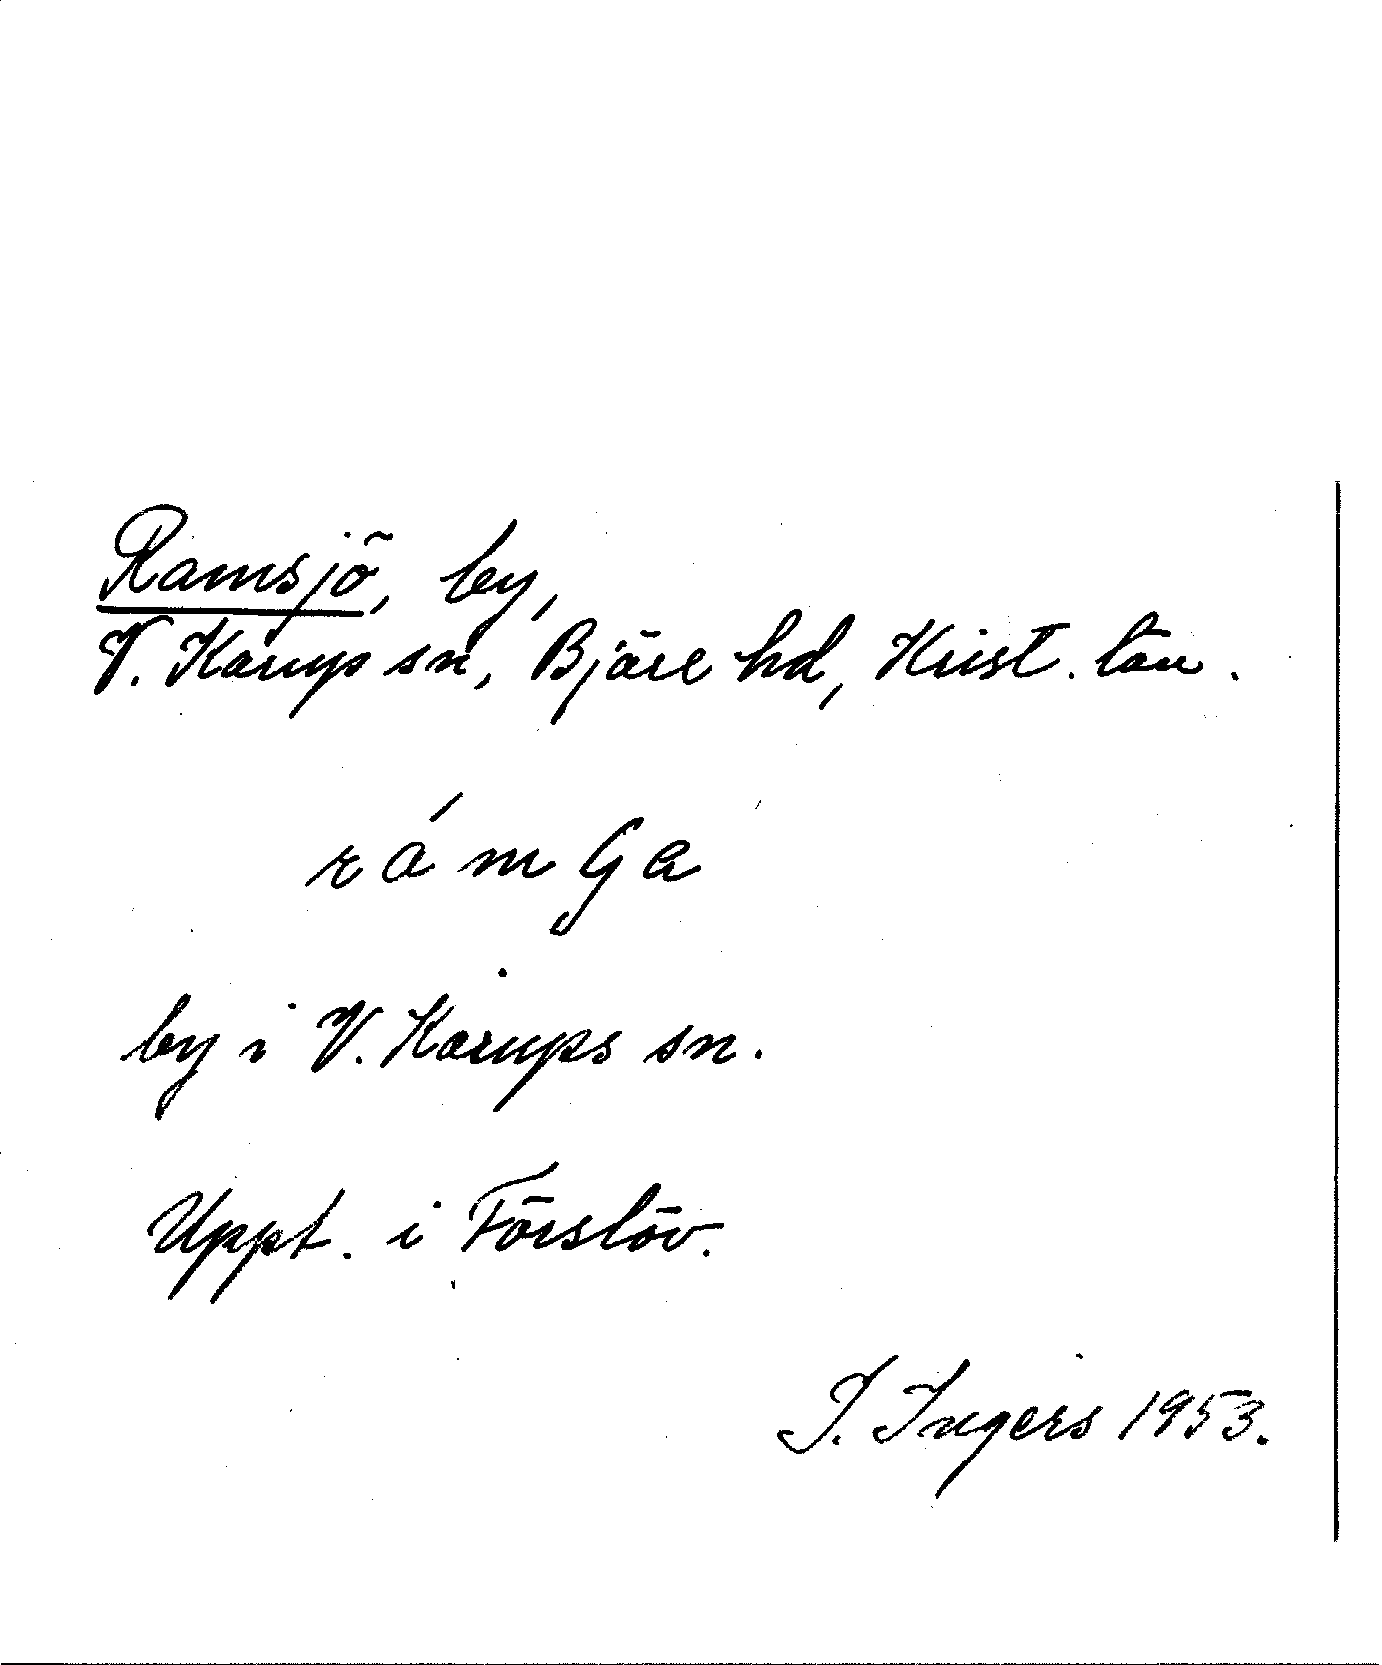 Ramsjö, by,
V. Karup sn, Bjäre hd, Krist. län.
rámGa
by i V. Karups sn.
Uppt. i Förslöv.
I. Ingers 1953.